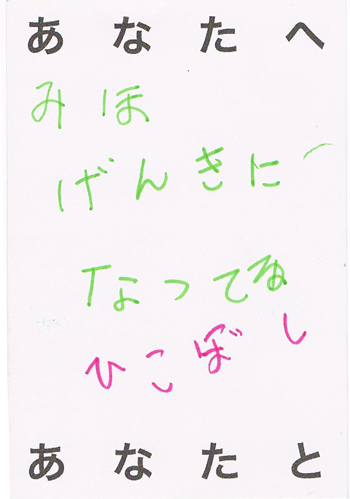 あなたへ
みほ
げんきに
なってね
ひこぼし
あなたと